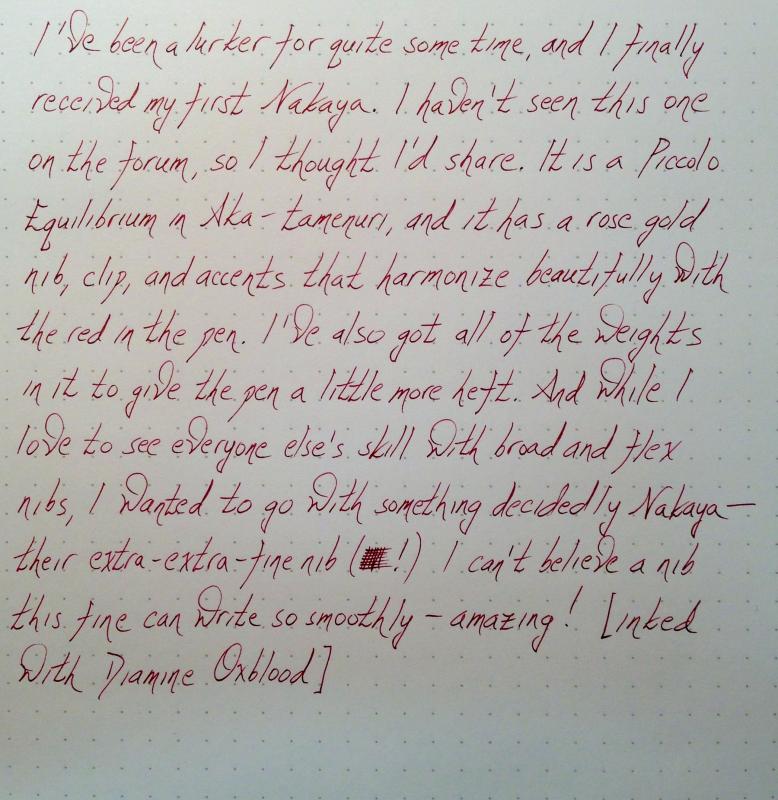 I've been a lurker for quite some time, and I finally
received my first Nakaya. I haven't seen this one
on the forum, so I thought I'd share. It is a Piccolo
Equilibrium in Aka-tamenuri, and it has a rose gold
nib, clip, and accents that harmonize beautifully with
the red in the pen. I've also got all of the weights
in it to give the pen a little more heft. And while I
love to see everyone else's skill with broad and flex
nibs, I wanted to go with something decidedly Nakaya—
their extra-extra-fine nib (!) I can't believe a nib
this fine can write so smoothly – amazing! [inked
with Diamine Oxblood]